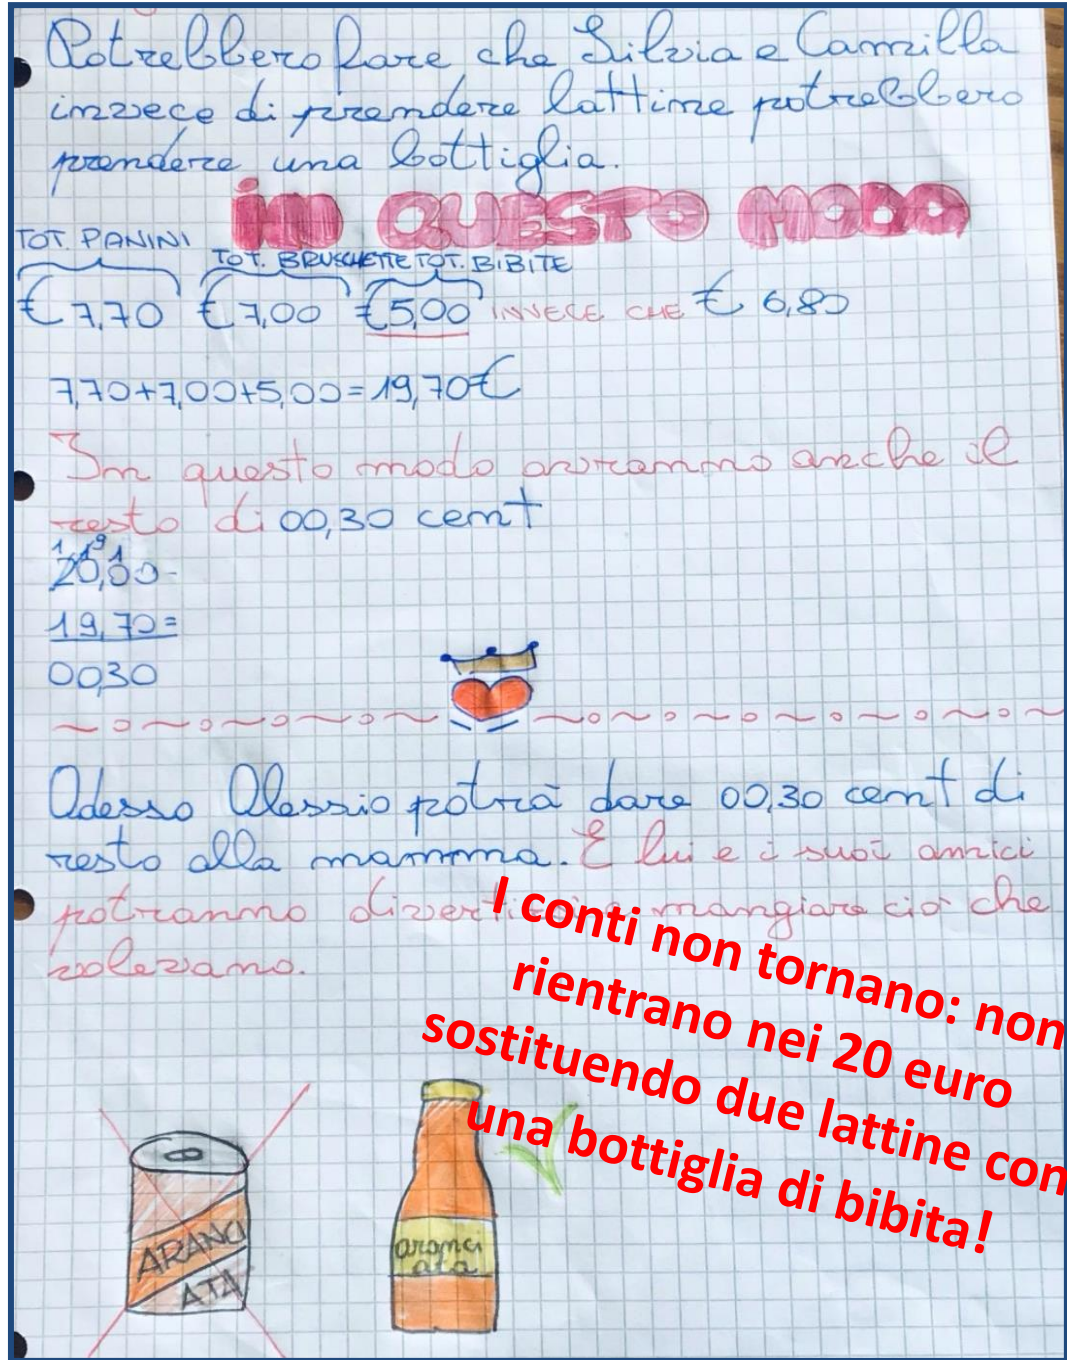 Potrebbero fare che Silvia e Camilla
invece di prendere lattine potrebbero
prendere una bottiglia.
IN QUESTO MODO
TOT. PANINI TOT. BRUSCHETTE TOT. BIBITE
€ 7,70 € 7,00 €5,00 INVECE CHE € 6,80
7,70+7,00+5,00=19,70€
In questo modo avranno anche il
resto di 00,30 cent
1 1 9 1
20,00-
19,70=
00,30
Adesso Alessio potrà dare 00,30 cent di
resto alla mamma. E lui e i suoi amici
potranno mangiare ciò che
volevano.
I conti non tornano: non
rientrano nei 20 euro
sostituendo due lattine con
una bottiglia di bibita!
ARANCI
ATA
aranci
ata